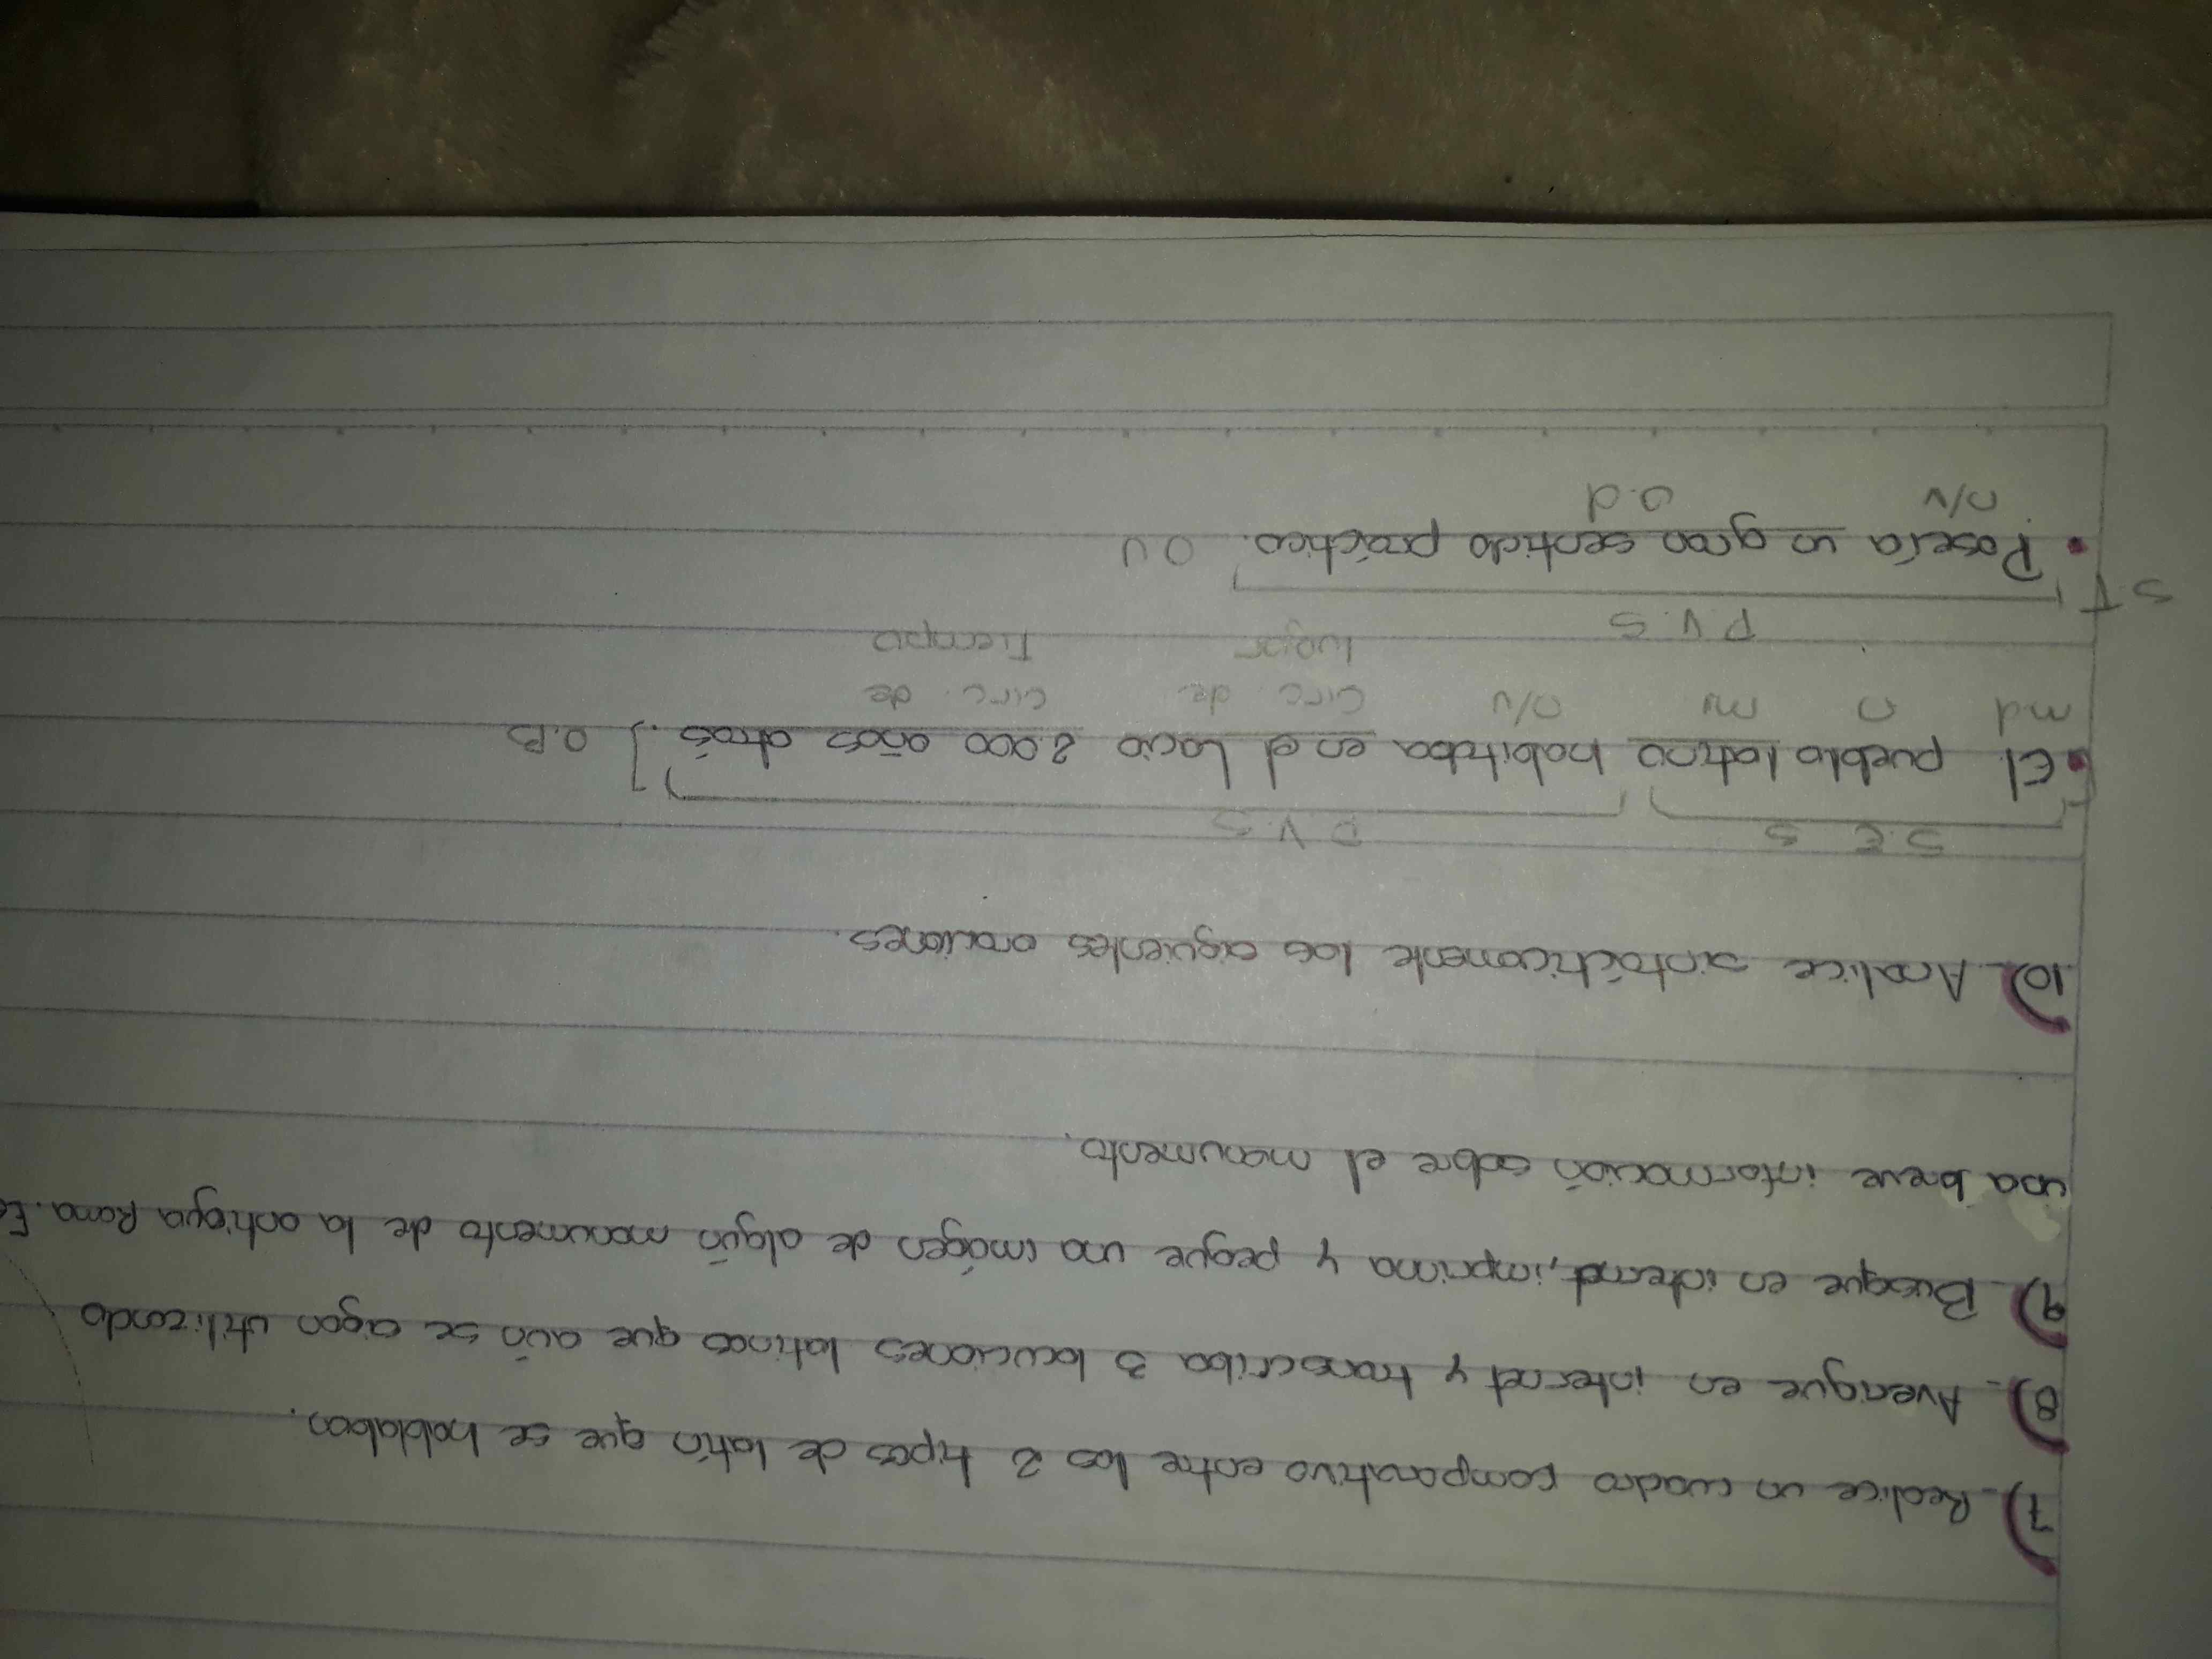 7)- Realice un cuadro comparativo entre los 2 tipos de latín que se hablaban.
8)- Averigue en internet y transcriba 3 locuciones latinas que aún se sigan utilizando
9)- Busque en internet, imprima y pegue una imágen de algún monumento de la antigua Roma.
una breve información sobre el monumento.
10)- Analice sintácticamente las siguientes oraciones.
S.E.S P.V.S
[El pueblo latino habitaba en el Lacio 2.000 años atrás.] O.B
md n mi n/v circ. de circ. de
lugar Tiempo
P.V.S
S.T
• Poseía un gran sentido práctico. O U
n/v o.d